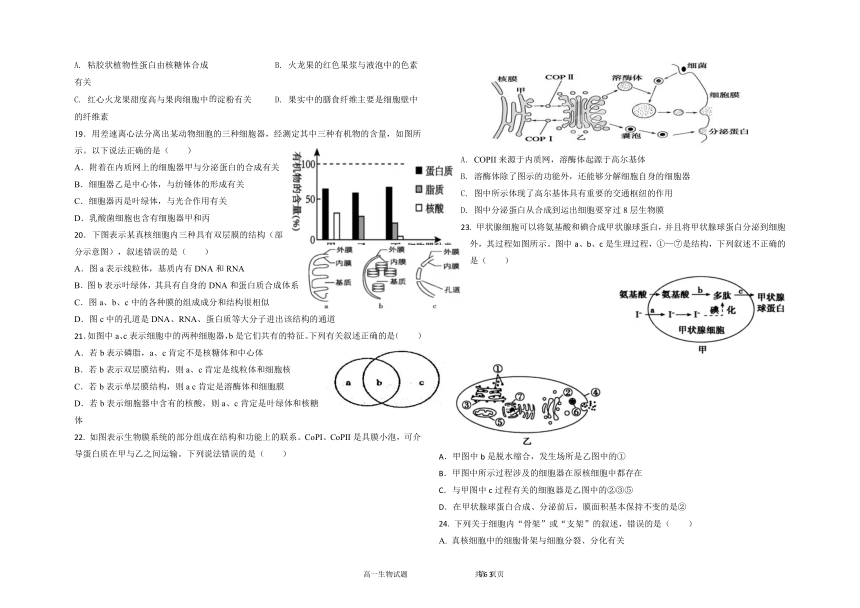 A. 粘胶状植物性蛋白由核糖体合成 B. 火龙果的红色果浆与液泡中的色素
有关
C. 红心火龙果甜度高与果肉细胞中的淀粉有关 D. 果实中的膳食纤维主要是细胞壁中
的纤维素
19．用差速离心法分离出某动物细胞的三种细胞器，经测定其中三种有机物的含量，如图所
示。以下说法正确的是（ ）
A．附着在内质网上的细胞器甲与分泌蛋白的合成有关
B．细胞器乙是中心体，与纺锤体的形成有关
C．细胞器丙是叶绿体，与光合作用有关
D．乳酸菌细胞也含有细胞器甲和丙
有机物的含量(%)
100
50
0
蛋白质
脂质
核酸
20．下图表示某真核细胞内三种具有双层膜的结构（部
分示意图），叙述错误的是（ ）
A．图 a 表示线粒体，基质内有 DNA 和 RNA
B．图 b 表示叶绿体，其具有自身的 DNA 和蛋白质合成体系
C．图 a、b、c 中的各种膜的组成成分和结构很相似
D．图 c 中的孔道是 DNA、RNA、蛋白质等大分子进出该结构的通道
外膜
内膜
基质
a
外膜
内膜
基质
b
外膜
内膜
孔道
c
21．如图中 a、c 表示细胞中的两种细胞器，b 是它们共有的特征。下列有关叙述正确的是（ ）
A．若 b 表示磷脂，a、c 肯定不是核糖体和中心体
B．若 b 表示双层膜结构，则 a、c 肯定是线粒体和细胞核
C．若 b 表示单层膜结构，则 a c 肯定是溶酶体和细胞膜
D．若 b 表示细胞器中含有的核酸，则 a、c 肯定是叶绿体和核糖
体
a b c
22. 如图表示生物膜系统的部分组成在结构和功能上的联系。CoPI、CoPII 是具膜小泡，可介
导蛋白质在甲与乙之间运输。下列说法错误的是（ ）
核膜
甲
COPⅡ
COPⅠ
乙
溶酶体
囊泡
细菌
细胞膜
分泌蛋白
A. COPII 来源于内质网，溶酶体起源于高尔基体
B. 溶酶体除了图示的功能外，还能够分解细胞自身的细胞器
C. 图中所示体现了高尔基体具有重要的交通枢纽的作用
D. 图中分泌蛋白从合成到运出细胞要穿过 8 层生物膜
23. 甲状腺细胞可以将氨基酸和碘合成甲状腺球蛋白，并且将甲状腺球蛋白分泌到细胞
外，其过程如图所示。图中 a、b、c 是生理过程，①—⑦是结构，下列叙述不正确的
是（ ）
氨基酸 氨基酸 b 多肽 c 甲状腺
球蛋白
I⁻ a I⁻ I⁻ 碘 化
甲状腺细胞
甲
①
②
③
④
⑤
⑥
⑦
乙
A．甲图中 b 是脱水缩合，发生场所是乙图中的①
B．甲图中所示过程涉及的细胞器在原核细胞中都存在
C．与甲图中 c 过程有关的细胞器是乙图中的②③⑤
D．在甲状腺球蛋白合成、分泌前后，膜面积基本保持不变的是②
24．下列关于细胞内“骨架”或“支架”的叙述，错误的是（ ）
A. 真核细胞中的细胞骨架与细胞分裂、分化有关
高一生物试题